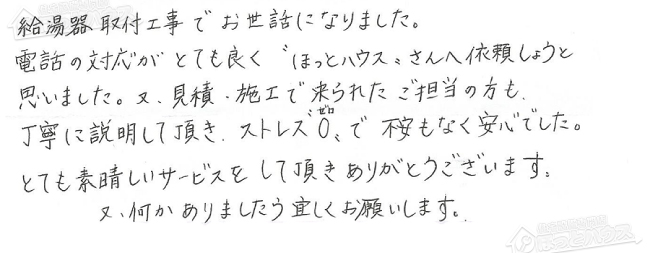 給湯器取付工事でお世話になりました。
電話の対応がとても良く〝ほっとハウス〟さんへ依頼しようと
思いました。又、見積・施工で来られたご担当の方も、
丁寧に説明して頂き、ストレス〝0〟で不安もなく安心でした。
ゼロ
とても素晴しいサービスをして頂きありがとうございます。
又、何かありましたら宜しくお願いします。